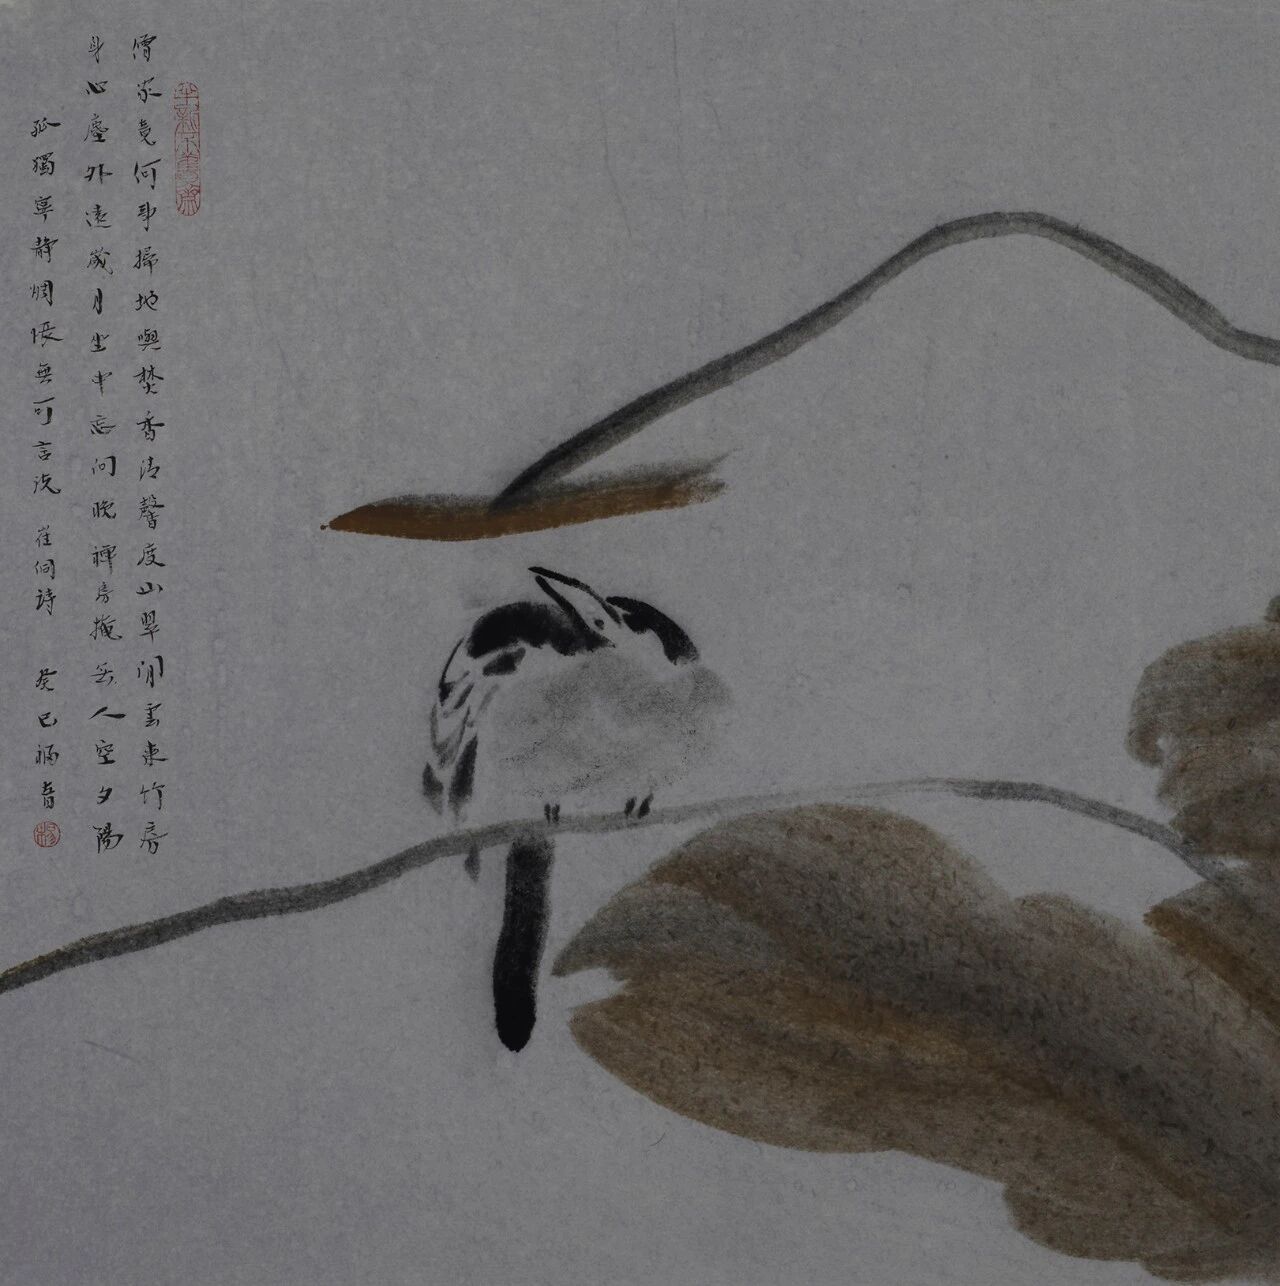 僧家竟何事掃地與焚香清馨度山翠閒雲來竹房
身心塵外遠歲月坐中忘向晚禪房掩無人空夕陽
孤獨寧靜惆悵無可言說 崔侗詩 癸巳福音